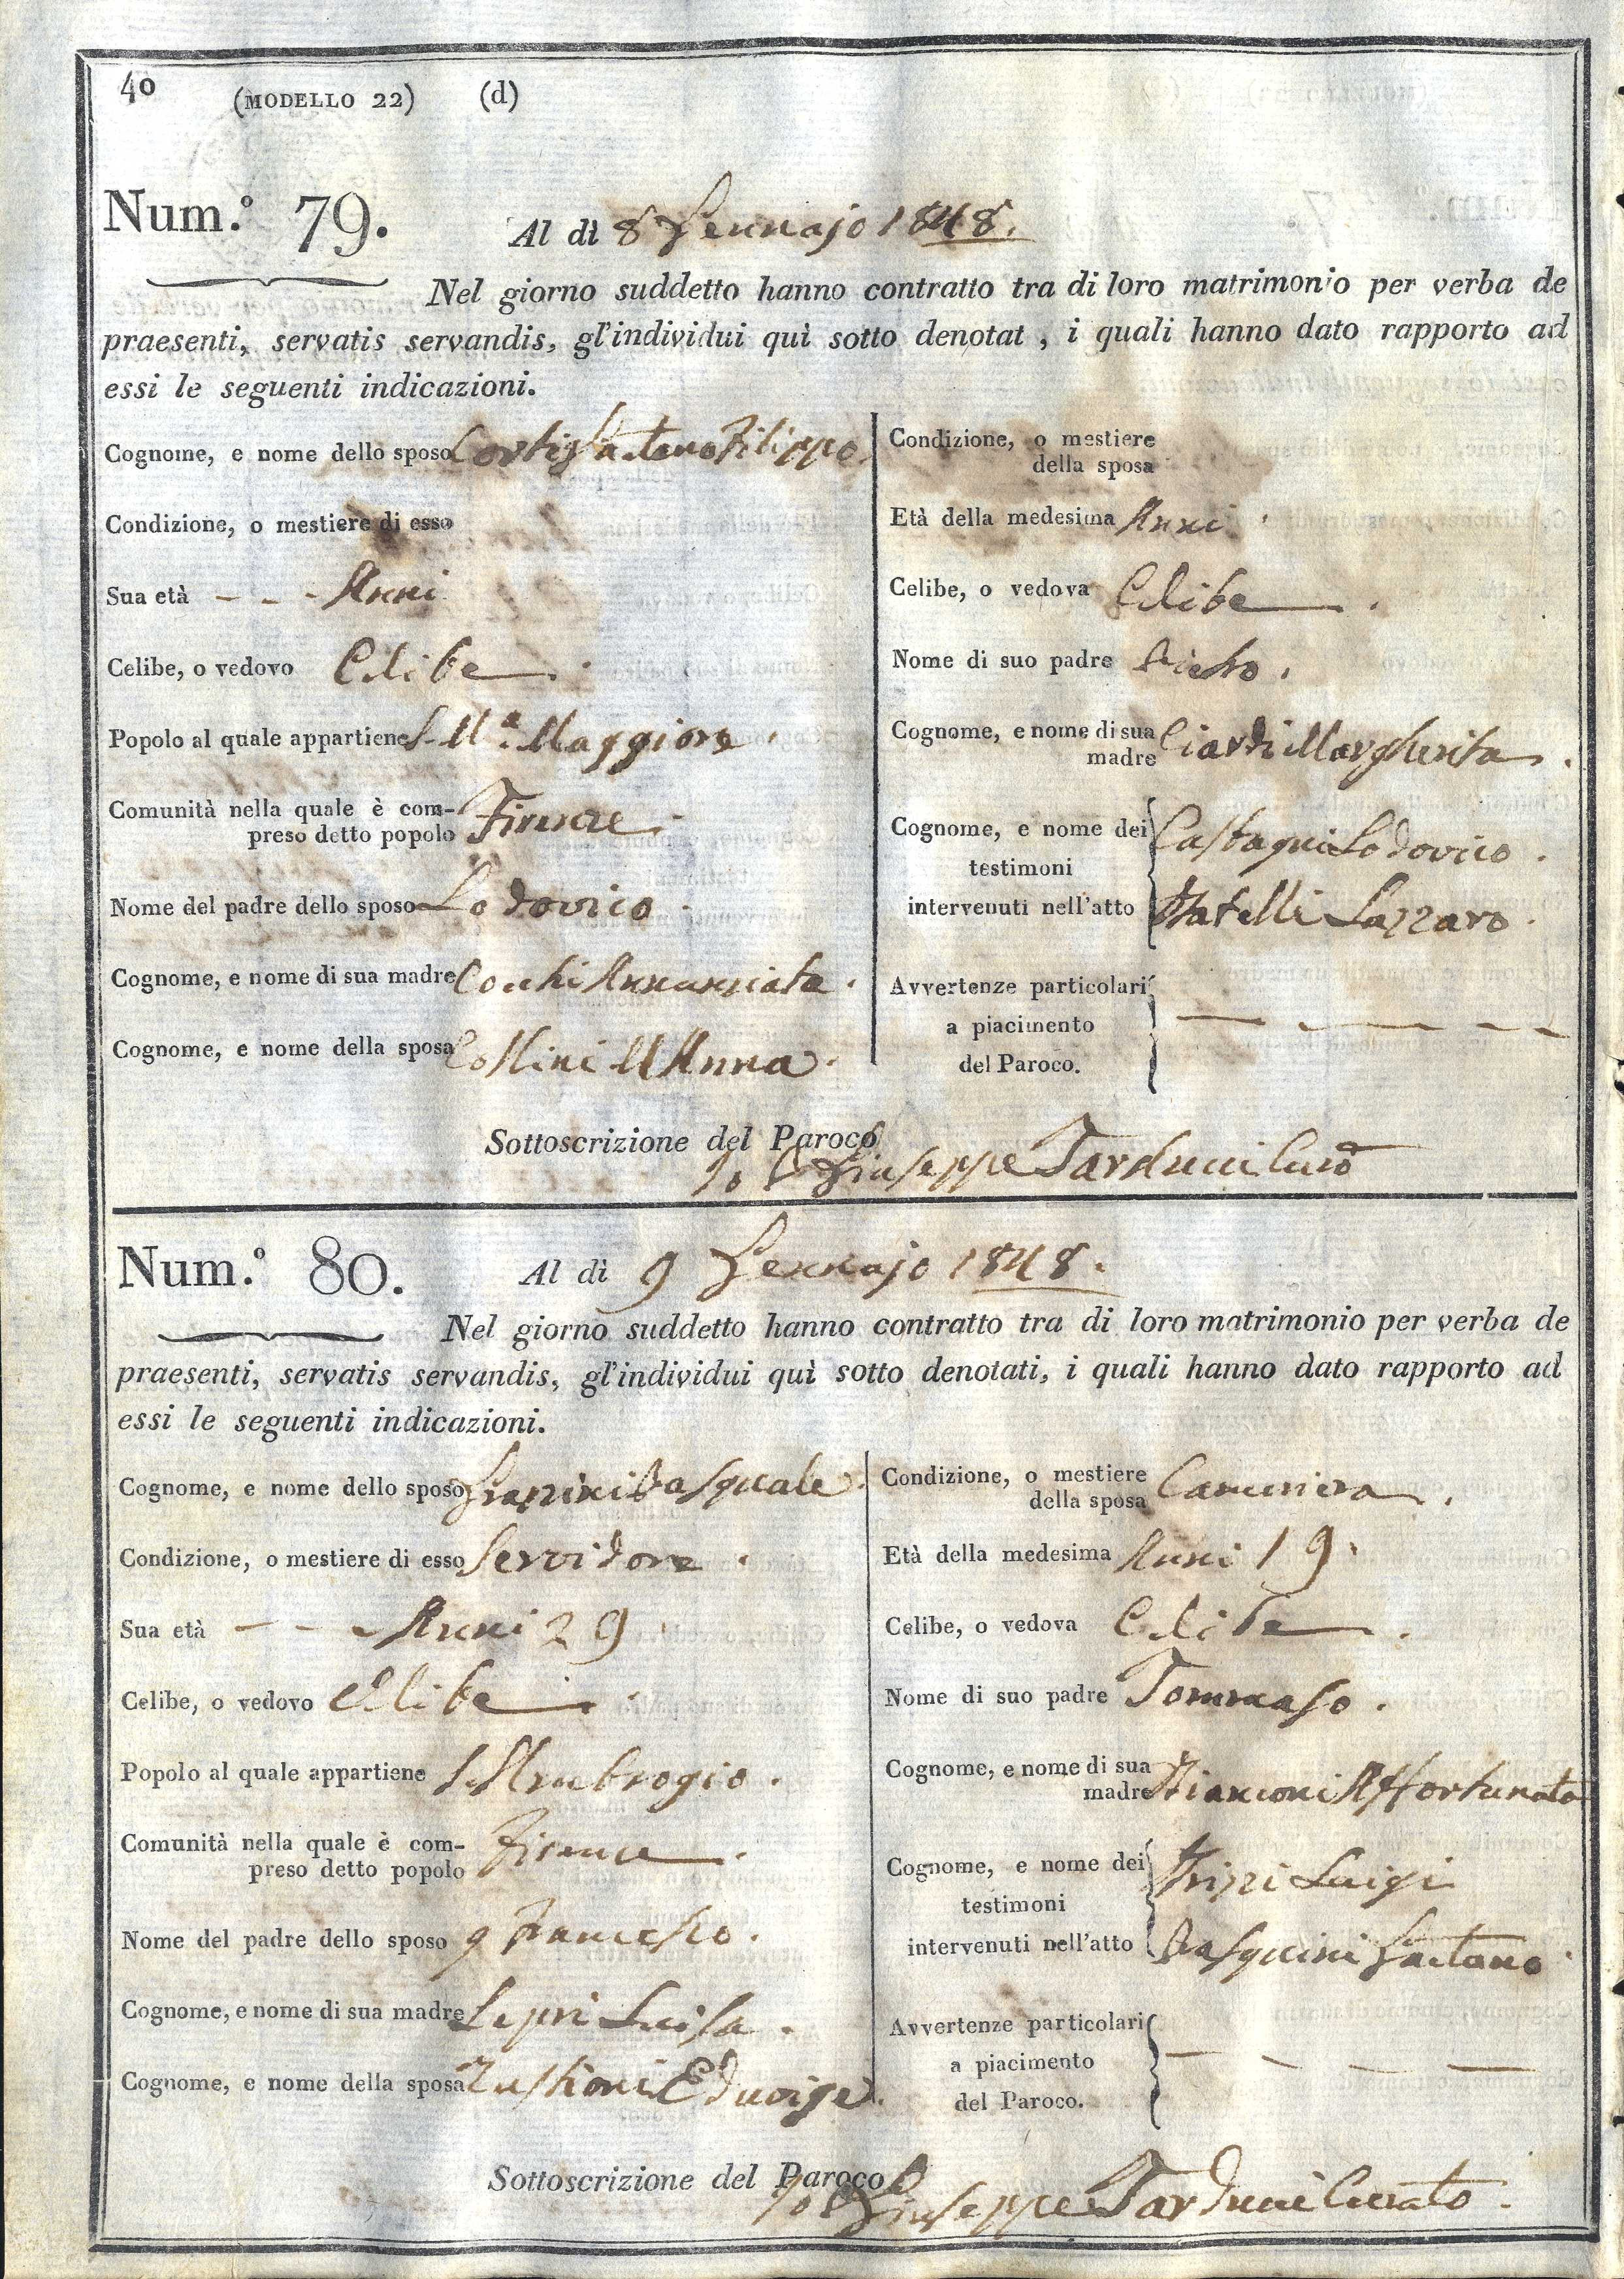 40 (MODELLO 22) (d)
Num.º 79. Al dì 8 Gennajo 1848.
Nel giorno suddetto hanno contratto tra di loro matrimonio per verba de
praesenti, servatis servandis, gl'individui quì sotto denotat , i quali hanno dato rapporto ad
essi le seguenti indicazioni.
Cognome, e nome dello sposo Filippo
Condizione, o mestiere di esso
Sua età - - - Anni
Celibe, o vedovo Celibe
Popolo al quale appartiene S. M.ª Maggiore
Comunità nella quale è com-
preso detto popolo Firenze
Nome del padre dello sposo Lodovico
Cognome, e nome di sua madre Cocchi Annunziata
Cognome, e nome della sposa Collini M Anna
Condizione, o mestiere
della sposa
Età della medesima Anni
Celibe, o vedova Celibe
Nome di suo padre
Cognome, e nome di sua
madre Ciardi Margherita
Cognome, e nome dei Castagni Lodovico
testimoni
intervenuti nell'atto Lazzaro
Avvertenze particolari
a piacimento
del Paroco.
Sottoscrizione del Paroco
Io Giuseppe Tarducci Curº
Num.º 80. Al dì 9 Gennajo 1848.
Nel giorno suddetto hanno contratto tra di loro matrimonio per verba de
praesenti, servatis servandis, gl'individui quì sotto denotati, i quali hanno dato rapporto ad
essi le seguenti indicazioni.
Cognome, e nome dello sposo Grazini Pasquale
Condizione, o mestiere di esso Servidore
Sua età - - - Anni 29
Celibe, o vedovo Celibe
Popolo al quale appartiene S. Ambrogio
Comunità nella quale è com-
preso detto popolo Firenze
Nome del padre dello sposo q Francesco
Cognome, e nome di sua madre Lepri Luisa
Cognome, e nome della sposa Eduvige
Condizione, o mestiere
della sposa Cameriera
Età della medesima Anni 19
Celibe, o vedova Celibe
Nome di suo padre Tommaso
Cognome, e nome di sua
madre Bianconi Affortunata
Cognome, e nome dei Luigi
testimoni
intervenuti nell'atto Pasquini Gaetano
Avvertenze particolari
a piacimento
del Paroco.
Sottoscrizione del Paroco
Io Giuseppe Tarducci Curato